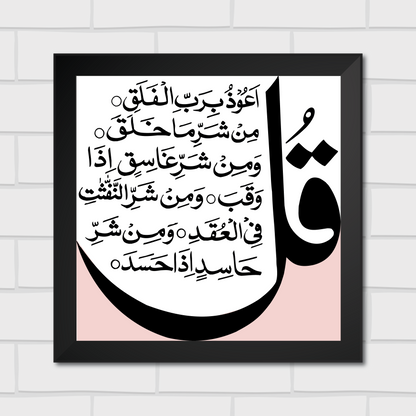 قُل
اَعُوْذُ بِرَبِّ الْفَلَقِ ○
مِنْ شَرِّ مَا خَلَقَ ○
وَمِنْ شَرِّ غَاسِقٍ اِذَا
وَقَبَ ○ وَمِنْ شَرِّ النَّفّٰثٰتِ
فِی الْعُقَدِ ○ وَمِنْ شَرِّ
حَاسِدٍ اِذَا حَسَدَ ○